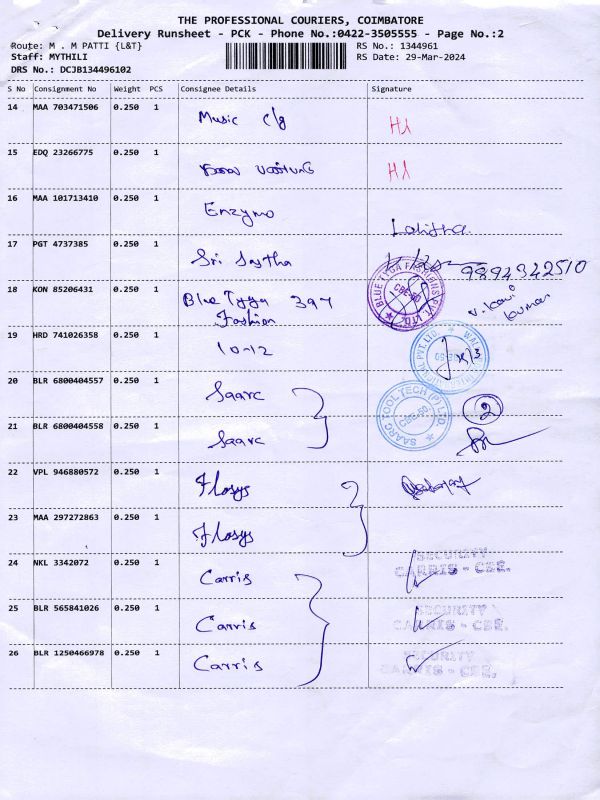 THE PROFESSIONAL COURIERS, COIMBATORE
Delivery Runsheet - PCK - Phone No.:0422-3505555 - Page No.:2
Route: M . M PATTI {L&T} RS No.: 1344961
Staff: MYTHILI RS Date: 29-Mar-2024
DRS No.: DCJB134496102
S No Consignment No Weight PCS Consignee Details Signature
14 MAA 703471506 0.250 1 Music c/g H1
15 EDQ 23266775 0.250 1 H1
16 MAA 101713410 0.250 1 Enzymo Lalitha
17 PGT 4737385 0.250 1 Sri Sastha 9894342510
18 KON 85206431 0.250 1 Blue Tyga 397
Fashion
BLUE TYGA FASHIONS PVT. LTD. CBE-50
v. Kavi
kumar
19 HRD 741026358 0.250 1 10-12
20 BLR 6800404557 0.250 1 Saarc
SAARC TOOL TECH (P) LTD. CBE-50
2
21 BLR 6800404558 0.250 1 Saarc
22 VPL 946880572 0.250 1 Flosys
23 MAA 297272863 0.250 1 Flosys
24 NKL 3342072 0.250 1 Carris SECURITY
CARRIS - CBE.
25 BLR 565841026 0.250 1 Carris SECURITY
CARRIS - CBE.
26 BLR 1250466978 0.250 1 Carris SECURITY
CARRIS - CBE.